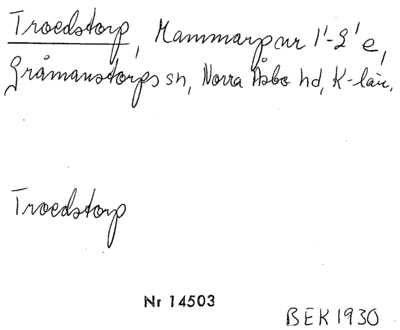 Troedstorp, Mammarp nr 1'-2' e,
Gråmanstorps sn, Norra Åsbo hd, K-län.
Troedstorp
Nr 14503
BEK 1930